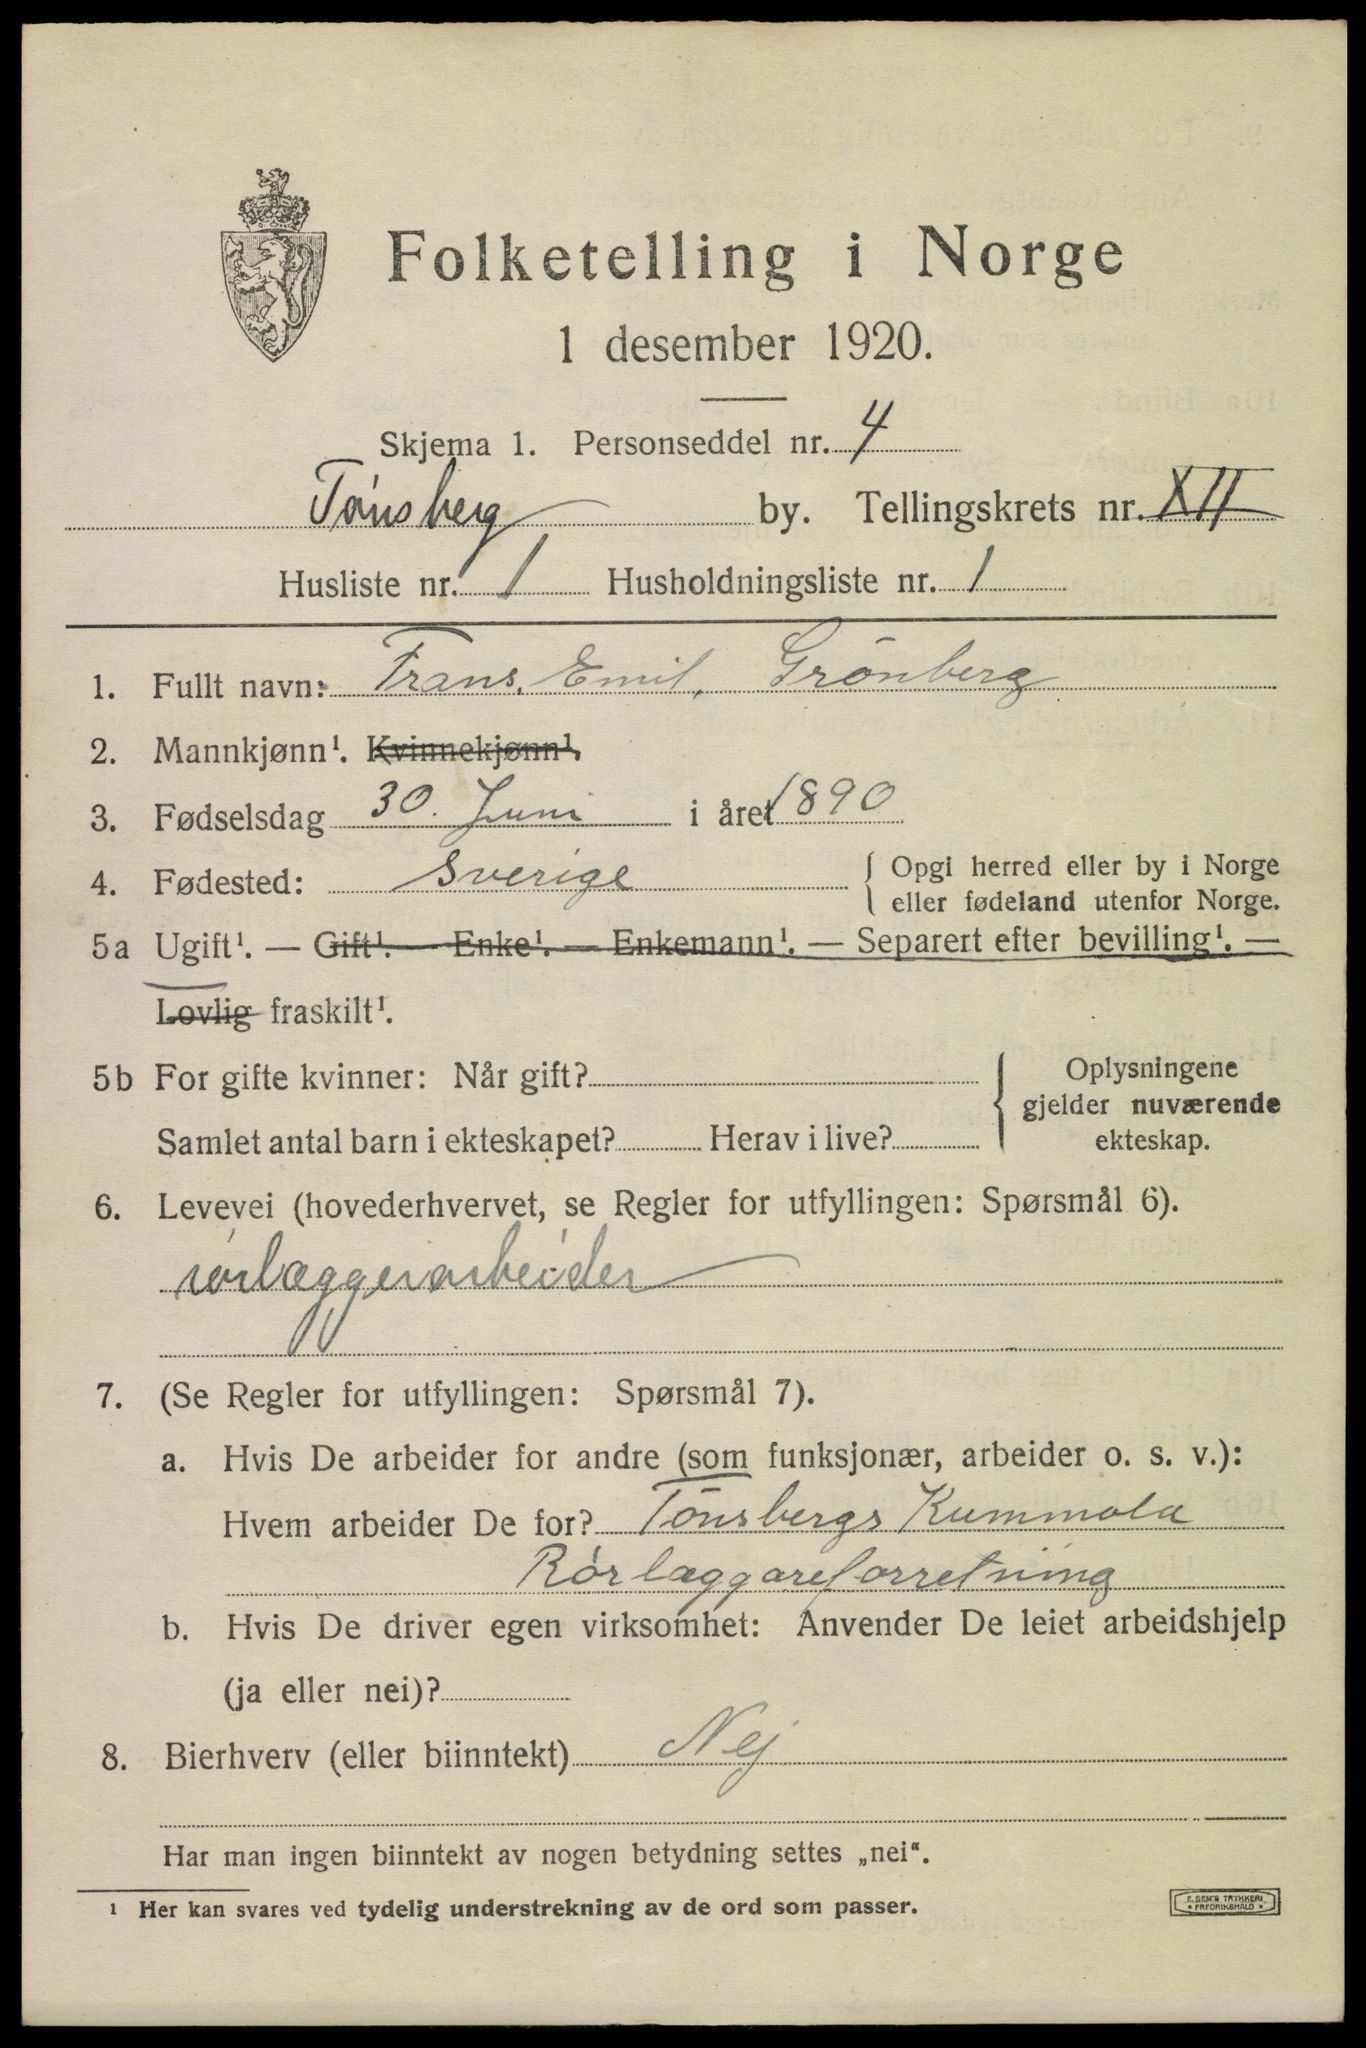 Folketelling i Norge
1 desember 1920.
Skjema 1. Personseddel nr. 4
Tønsberg by. Tellingskrets nr. XII
Husliste nr. 1 Husholdningsliste nr. 1
1. Fullt navn: Frans. Emil. Grönberg
2. Mannkjønn¹. Kvinnekjønn¹.
3. Fødselsdag 30. Juni i året 1890
4. Fødested: Sverige { Opgi herred eller by i Norge
eller fødeland utenfor Norge.
5a Ugift¹. — Gift¹. — Enke¹. — Enkemann¹. — Separert efter bevilling¹. —
Lovlig fraskilt¹.
5b For gifte kvinner: Når gift? { Oplysningene
gjelder nuværende
Samlet antal barn i ekteskapet? Herav i live? ekteskap.
6. Levevei (hovederhvervet, se Regler for utfyllingen: Spørsmål 6).
rørlæggerarbeider
7. (Se Regler for utfyllingen: Spørsmål 7).
a. Hvis De arbeider for andre (som funksjonær, arbeider o. s. v.):
Hvem arbeider De for? Tönsbergs Kummola
Rörlæggareforretning
b. Hvis De driver egen virksomhet: Anvender De leiet arbeidshjelp
(ja eller nei)?
8. Bierhverv (eller biinntekt) Nej
Har man ingen biinntekt av nogen betydning settes „nei“.
¹ Her kan svares ved tydelig understrekning av de ord som passer.
E. SEM'S TRYKKERI
FREDRIKSHALD